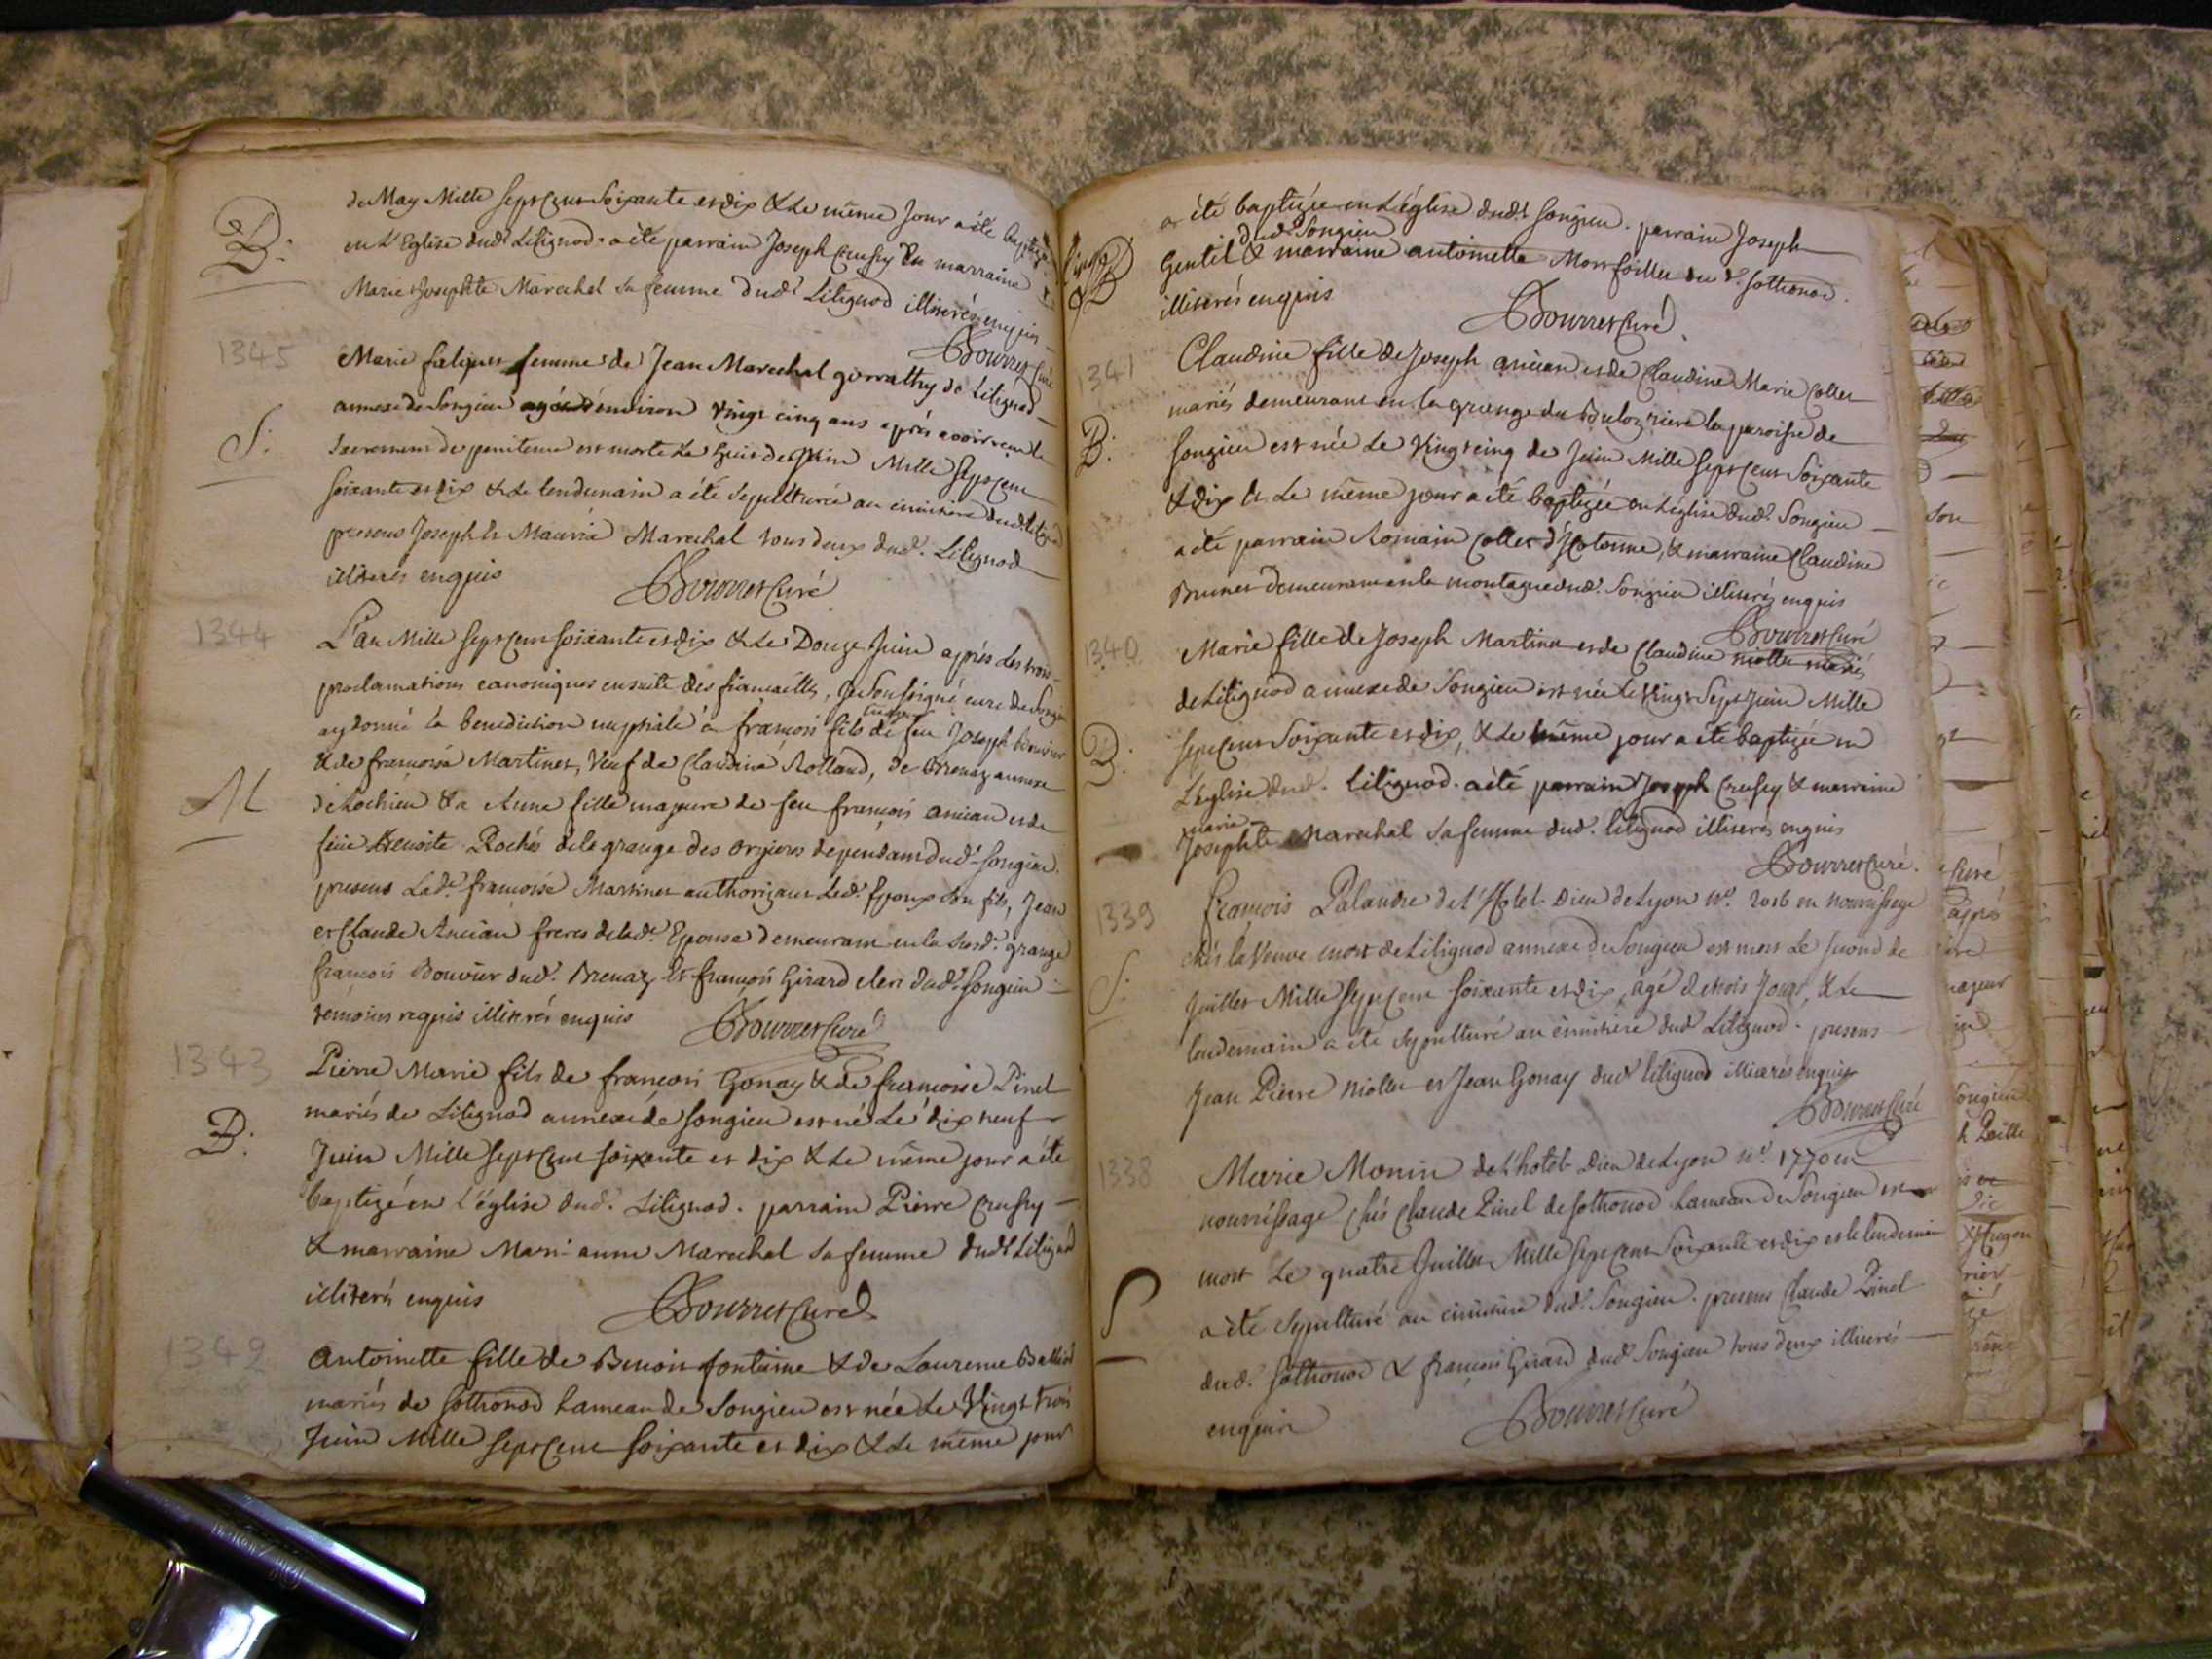 de May Mille Sept Cent Soixante et dix & Le même Jour a été baptizé
B.
en L'Eglise dud.t Litignod. a été parrain Joseph Crussy Et marraine
Marie Josephte Marechal sa femme dud.t Litignod illiterés enquis
Bourret Curé
1345
Marie falques femme de Jean Marechal de Litignod
annexe de Songieu agée d'environ Vingt cinq ans aprés avoir reçu le
S.
Sacrement de penitence est morte Le huit de Juin Mille Sept Cent
Soixante et dix & Le lendemain a été Sepulturée au cimitiere dud.t Litignod
presens Joseph & Mauris Marechal tous deux dud.t Litignod
illiterés enquis
Bourret Curé
1344
L'an Mille Sept Cent Soixante et dix & Le Douze Juin aprés Les trois
proclamations canoniques ensuite des fiançailles, Je Soussigné curé de Songieu
ay donné la benediction nuptiale à françois fils de feu Joseph Bouvier
& de françoise Martinet, Veuf de Claudine Rolland, de Brenaz annexe
M
de Lochieu & a Anne fille majeure de feu françois ancian et de
feüe Benoite Rochés de la grange des orgieres dependant dud.t Songieu.
presens Lad.e françoise Martinet authorizant Led.t Epoux Son fils, Jean
et Claude Ancian freres de lad.e Epouse demeurant en la Susd.e grange
françois Bouvier dud.t Brenaz, Et françois Girard clerc dud.t Songieu
témoins requis illiterés enquis
Bourret Curé
1343
Pierre Marie fils de françois Gonay & de françoise Pinel
mariés de Litignod annexe de Songieu est né Le dix neuf
B.
Juin Mille Sept Cent Soixante et dix & Le même jour a été
baptizé en L'église dud.t Litignod. parrain Pierre Crussy
& marraine Mari-anne Marechal sa femme dud.t Litignod
illiterés enquis
Bourret Curé
1342
Antoinette fille de Benoit fontaine & de Laurence Ballied
mariés de Sothonod hameau de Songieu est née Le Vingt trois
Juin Mille Sept Cent Soixante et dix & Le même jour
B
a été baptizée en L'église dud.t Songieu. parrain Joseph
dud.t Songieu
Gentil & marraine antoinette Monfoillet dud.t Sothonod.
illiterés enquis
Bourret Curé
1341
Claudine fille de Joseph ancian et de Claudine Marie Collet
mariés demeurant en la grange du riere la paroisse de
B.
Songieu est née Le Vingt cinq de Juin Mille Sept Cent Soixante
& dix Et Le même jour a été baptizée en L'église dud.t Songieu
a été parrain Romain Collet d'hotonne, & marraine Claudine
Brunet demeurant en la montagne dud.t Songieu illiterés enquis
Bourret Curé
1340
Marie fille de Joseph Martinet et de Claudine niollet mariés
de Litignod annexe de Songieu est née Le Vingt Sept Juin Mille
B.
Sept Cent Soixante et dix, & Le même jour a été baptizée en
L'église dud.t Litignod. a été parrain Joseph Crussy & marraine
marie
Josephte Marechal sa femme dud.t Litignod illiterés enquis
Bourret Curé.
1339
françois Palandre de L'Hotel-Dieu de Lyon n.o 2016 en nourrissage
chés la Veuve mort de Litignod annexe de Songieu est mort Le Second de
S.
Juillet Mille Sept Cent Soixante et dix, agé de trois Jours, & Le
lendemain a été Sepulturé au cimitiere dud.t Litignod. presens
Jean Pierre niollet et Jean Gonay dud.t Litignod illiterés enquis
Bourret Curé
1338
Marie Monin de L'hotel Dieu de Lyon n.o 1770 en
nourrissage chés Claude Pinel de Sothonod hameau de Songieu est
mort Le quatre Juillet Mille Sept Cent Soixante et dix et le lendemain
S
a été Sepulturé au cimitiere dud.t Songieu. presens Claude Pinel
dud.t Sothonod & françois Girard dud.t Songieu tous deux illiterés
enquis
Bourret Curé